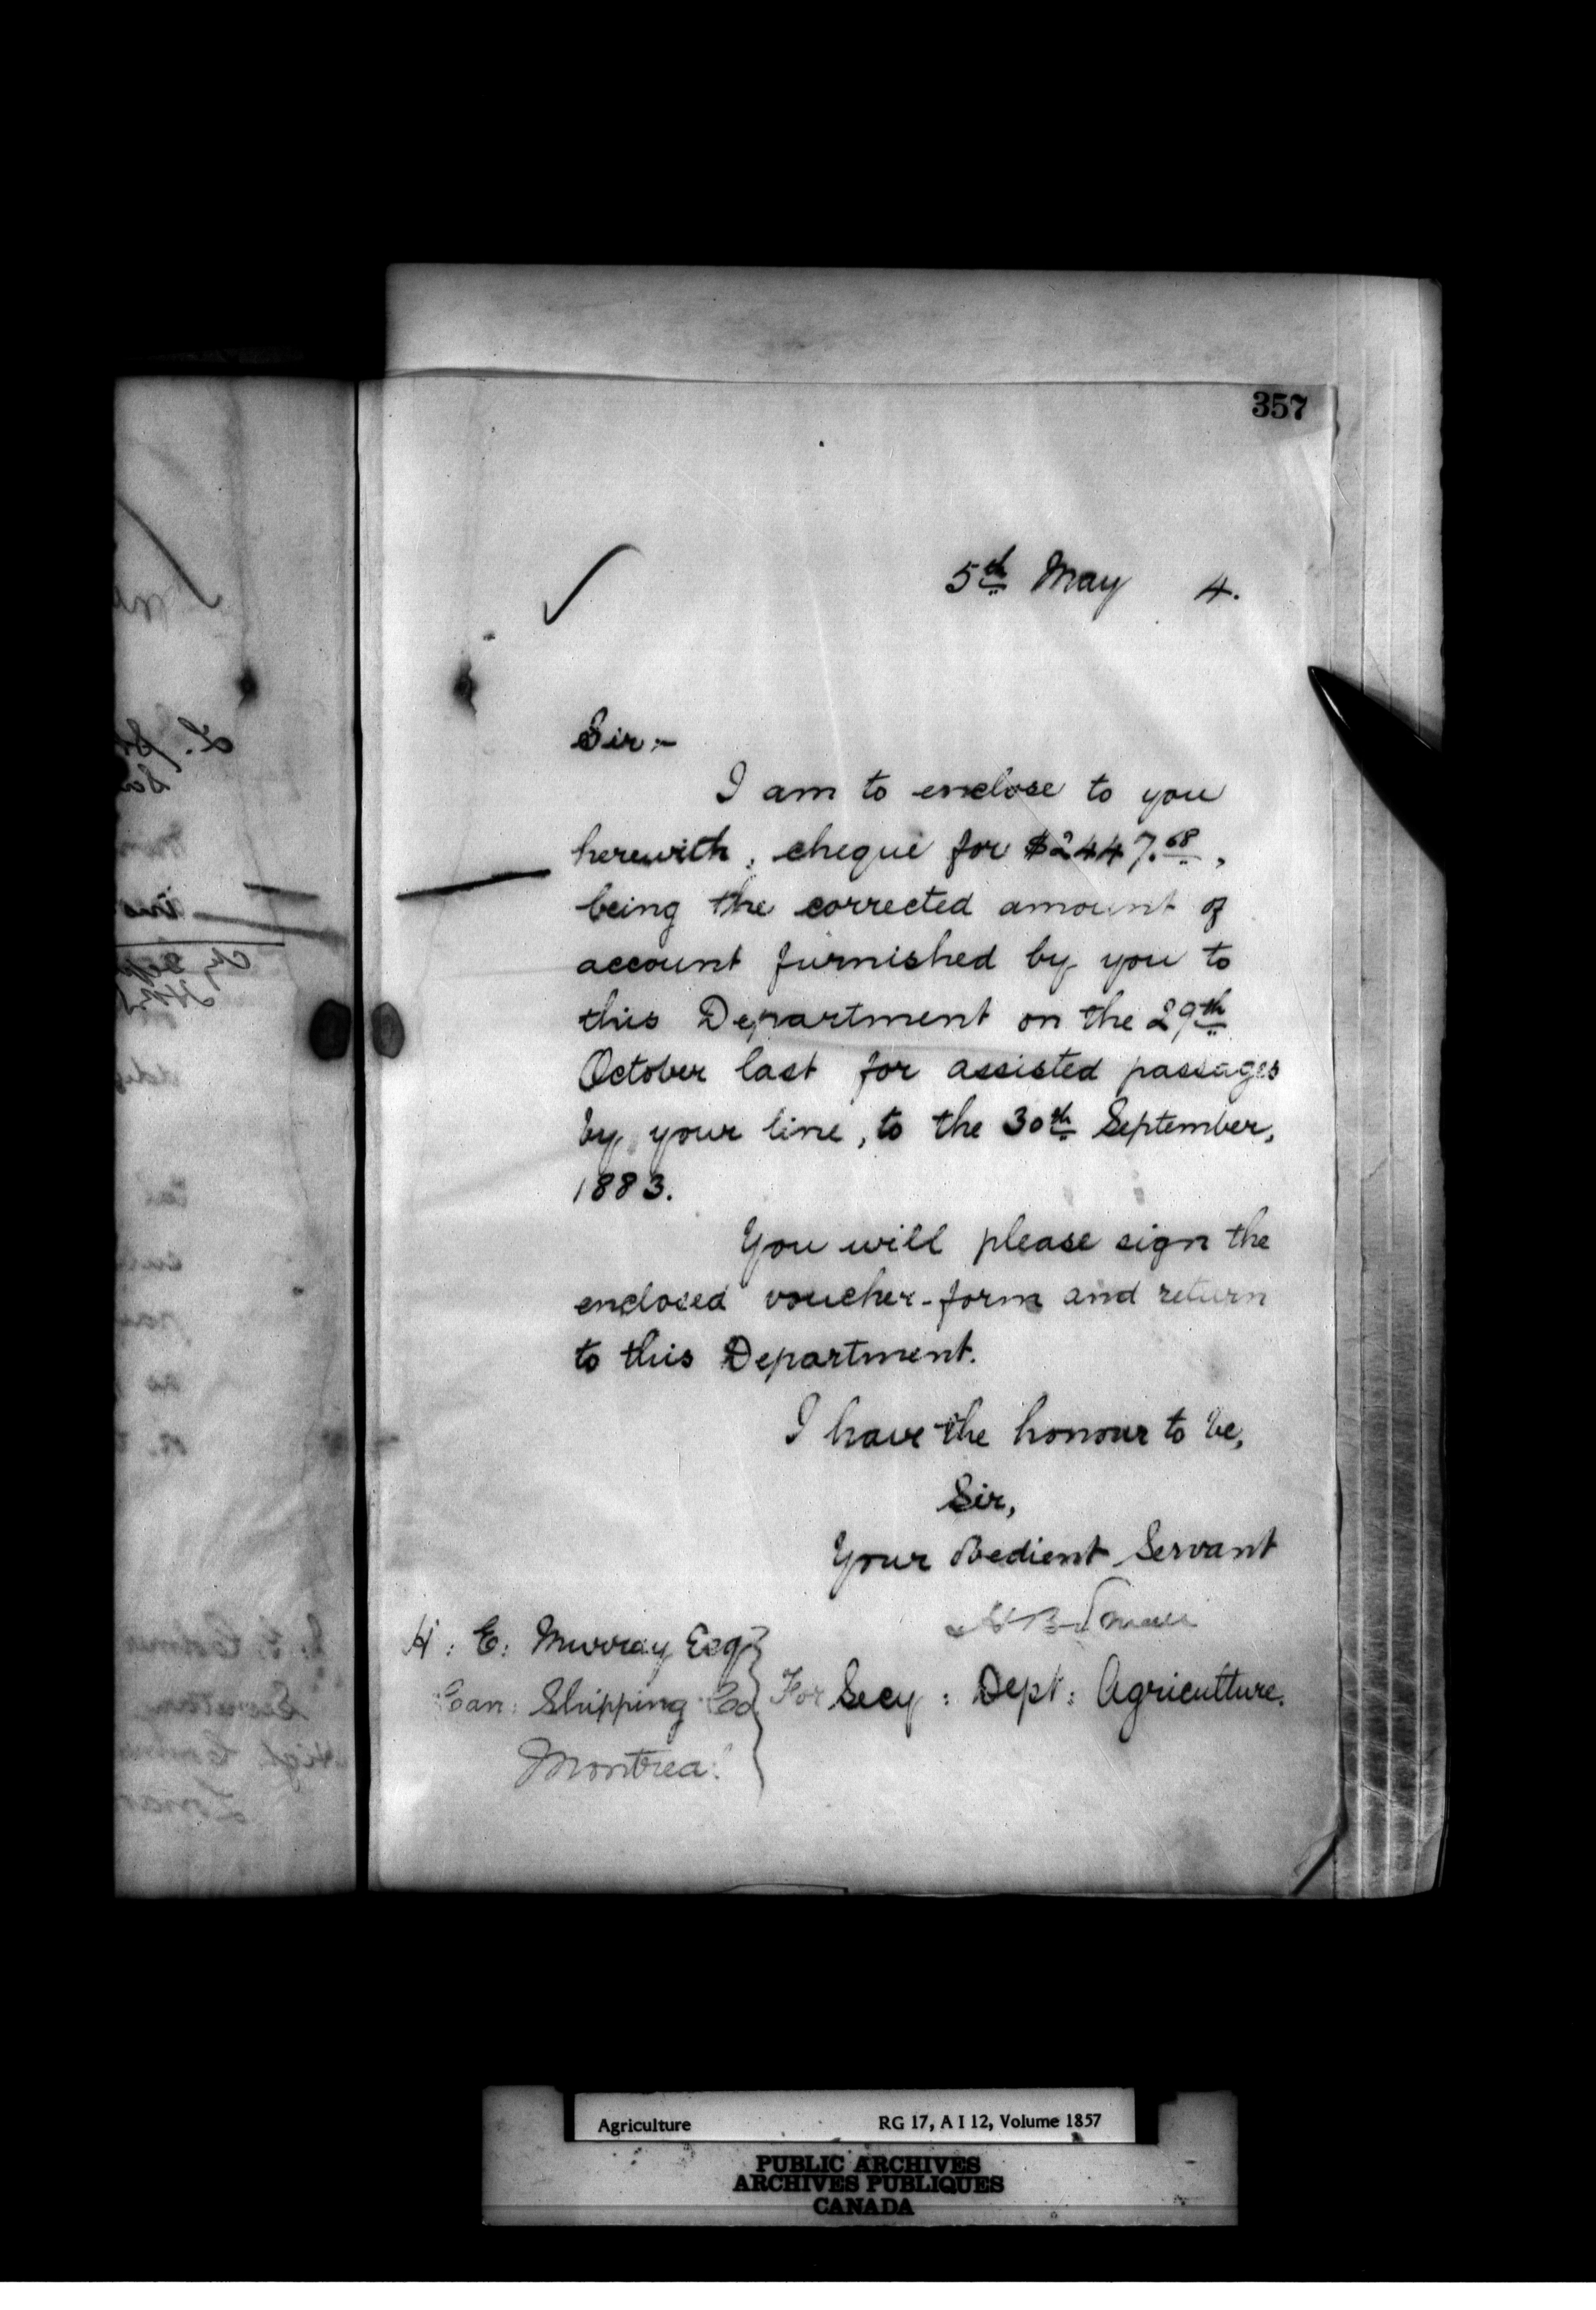 357
5th May 4.
Sir:-
I am to enclose to you
herewith, cheque for $2447.68,
being the corrected amount of
account furnished by you to
this Department on the 29th
October last for assisted passages
by your line, to the 30th September,
1883.
You will please sign the
enclosed voucher-form and return
to this Department.
I have the honour to be,
Sir,
Your obedient Servant
H B Small
For Secy: Dept: Agriculture.
H: E: Murray Esq
Can: Shipping Co
Montreal
Agriculture RG 17, A I 12, Volume 1857
PUBLIC ARCHIVES
ARCHIVES PUBLIQUES
CANADA